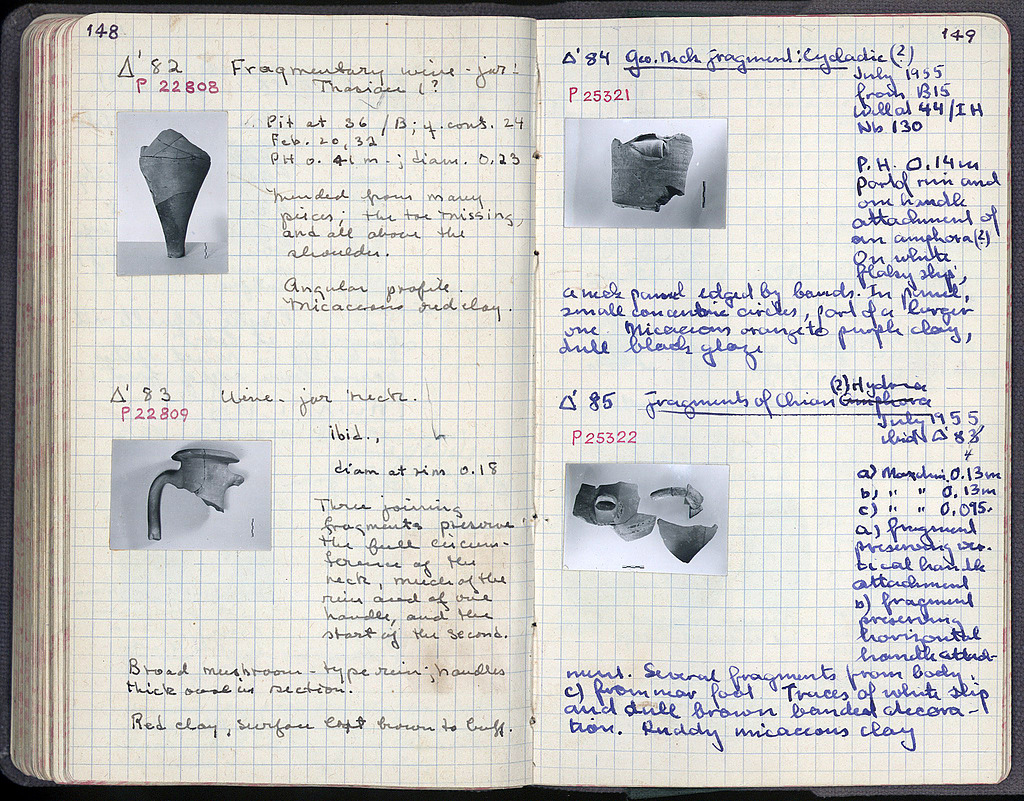 148
Δ' 82 Fragmentary wine-jar:
P 22808 Thasian ?
Pit at 36 /B; q. cont. 24
Feb. 20, 32
PH 0.41 m.; diam. 0.23
Mended from many
pieces; the toe missing,
and all above the
shoulder.
Angular profile.
Micaceous red clay.
Δ' 83 Wine-jar neck.
P 22809
ibid.,
diam at rim 0.18
Three joining
fragments preserve
the full circum-
ference of the
neck, much of the
rim and of one
handle, and the
start of the second.
Broad mushroom-type rim; handles
thick oval in section.
Red clay, surface brown to buff.
149
Δ' 84 Geo. Neck fragment: Cycladic (?)
July 1955
P 25321
from B15
well at 44/IH
Nb 130
P.H. 0.14m
part of rim and
one handle
attachment of
an amphora (?)
On white
flaky slip,
a neck panel edged by bands. In panel,
small concentric circles, part of a larger
one. Micaceous orange to purple clay,
dull black glaze
(?) Hydria
Δ' 85 fragments of Chian Amphora
July 1955
P 25322
ibid Δ' 83
4
a) Max dim 0.13m
b) " " 0.13m
c) " " 0.095.
a) fragment
preserving ver-
tical handle
attachment
b) fragment
preserving
horizontal
handle attach-
ment. Several fragments from body.
c) from near foot Traces of white slip
and dull brown banded decora-
tion. Ruddy micaceous clay